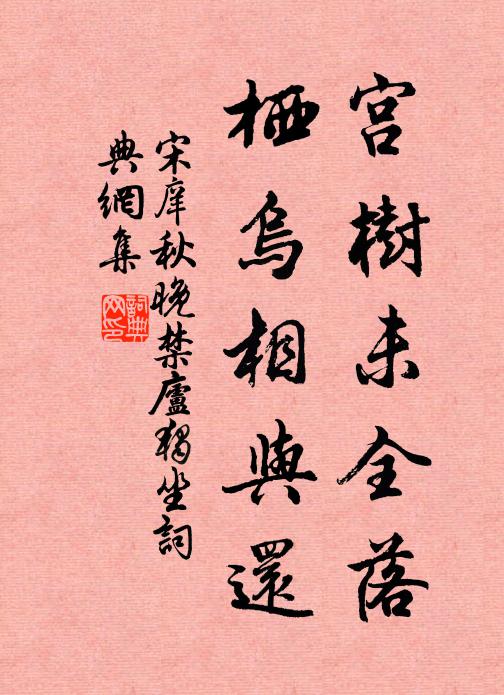 宮樹未全落
栖烏相與還
宋庠秋晚禁廬獨坐詞
典網集
詞典
网印